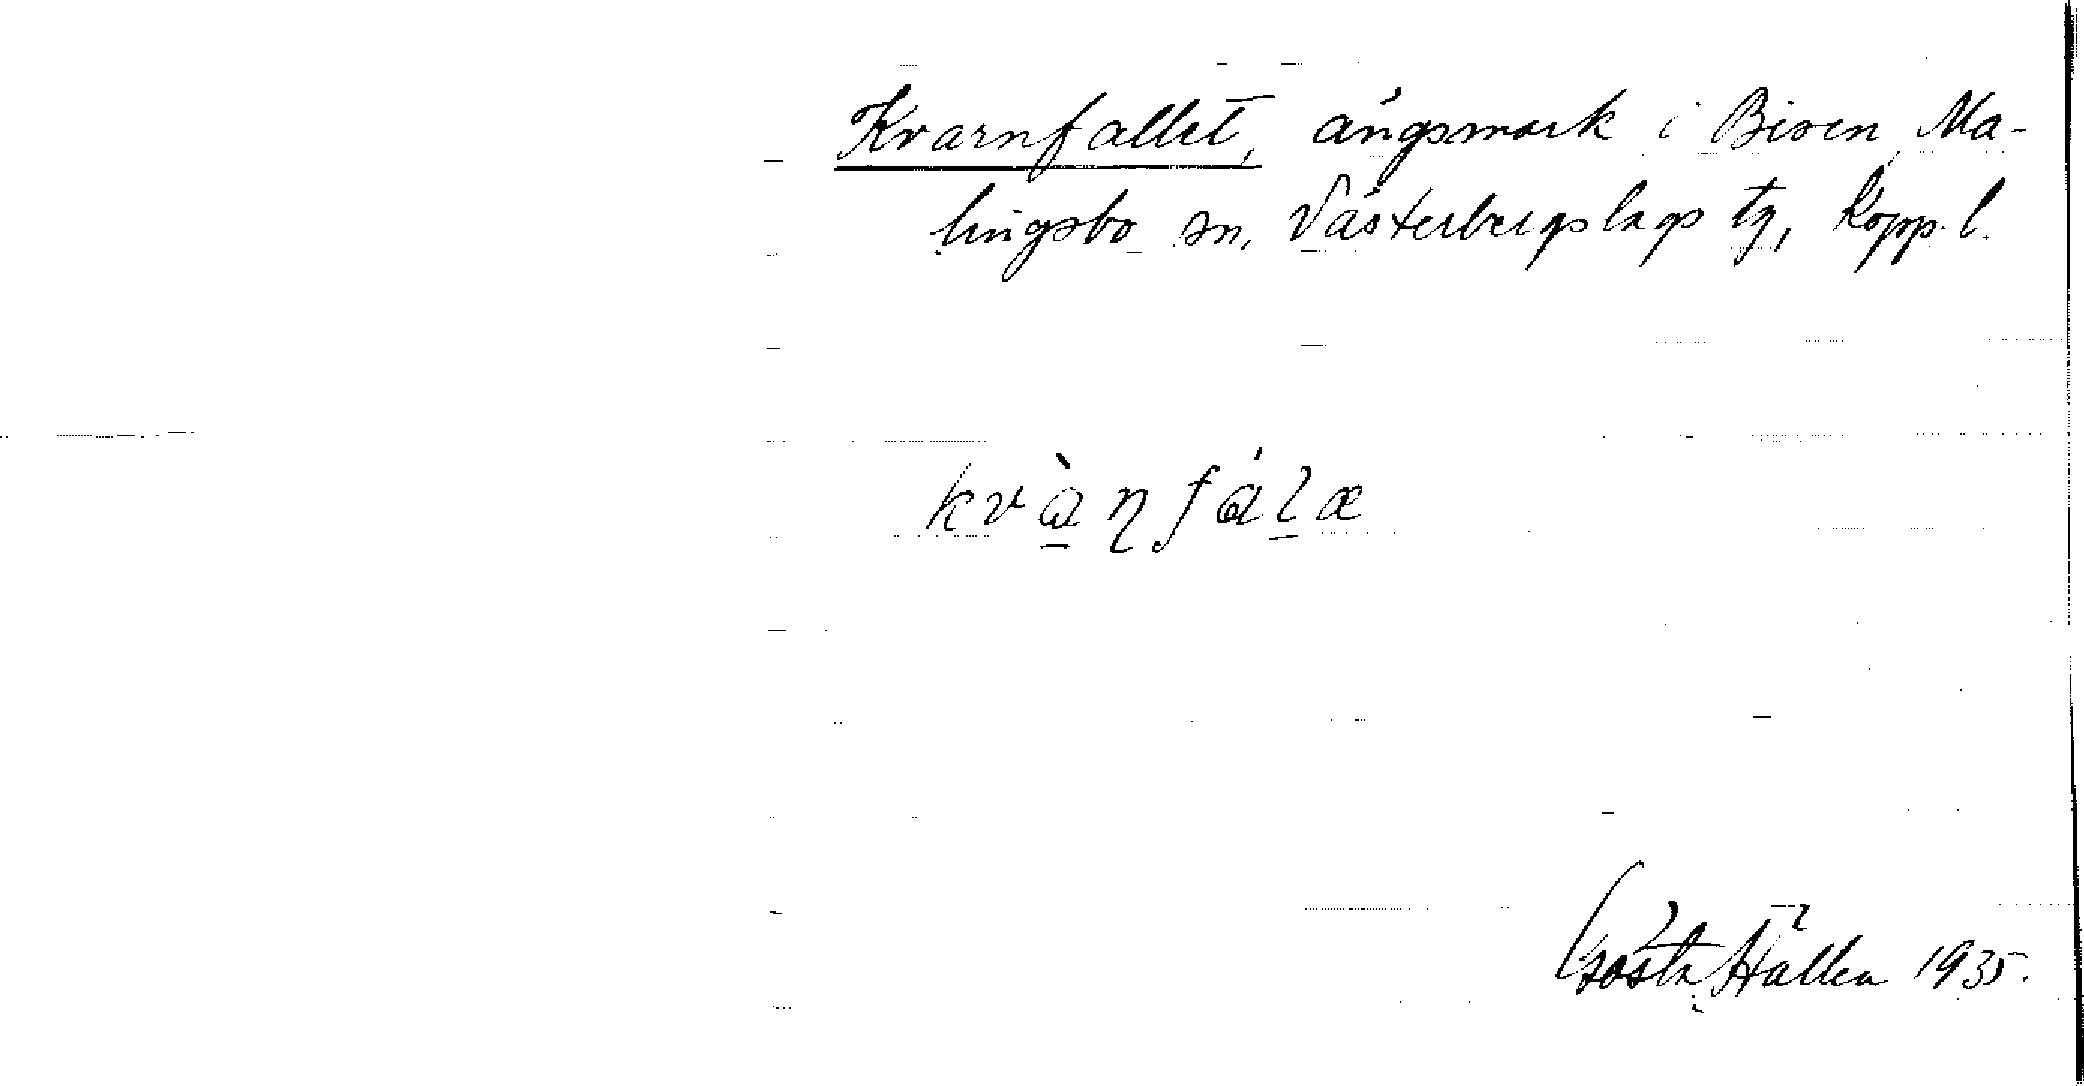 Kvarnfallet, ängsmark i Bisen, Ma-
lingsbo sn, Västerbergslags tg, Kopp. l.
kvàɳfálæ
Gösta Hallen 1935.